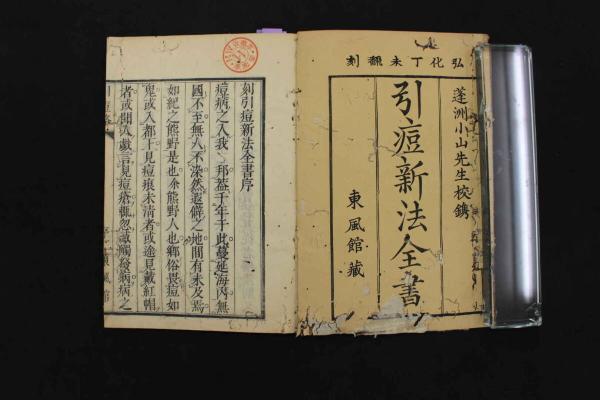 弘化丁未翻刻
蓬洲小山先生校鐫
引痘新法全書
東風館藏
刻引痘新法全書序
痘病之入我 邦蓋千年于此蔓延海內無
國不至無人不染然遐僻之地間有未及焉
如紀之熊野是也余熊野人也鄉俗畏痘如
鬼或入都下見痘痕未清者或途見戴紅帽
者或聞人戲言見痘瘡輒忽識觸發病病之